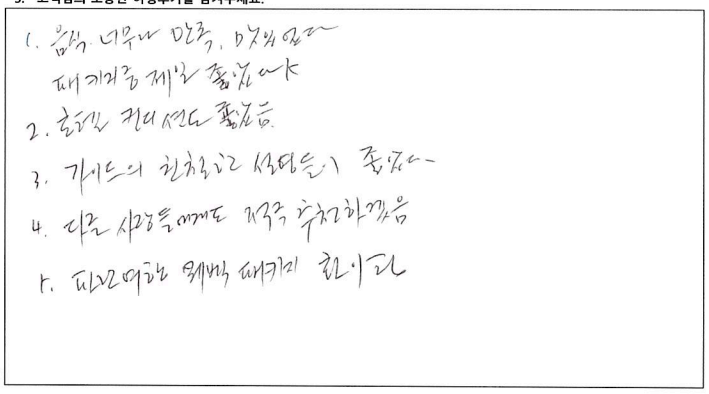 5. 고객님의 소중한 여행후기를 남겨주세요.
1. 음식 너무나 만족, 맛있었다
패키지중 제일 좋았다
2. 호텔 컨디션도 좋았음
3. 가이드의 친절하고 설명들이 좋았다
4. 다른 사람들에게도 적극 추천하겠음
5. 패키지 화이팅